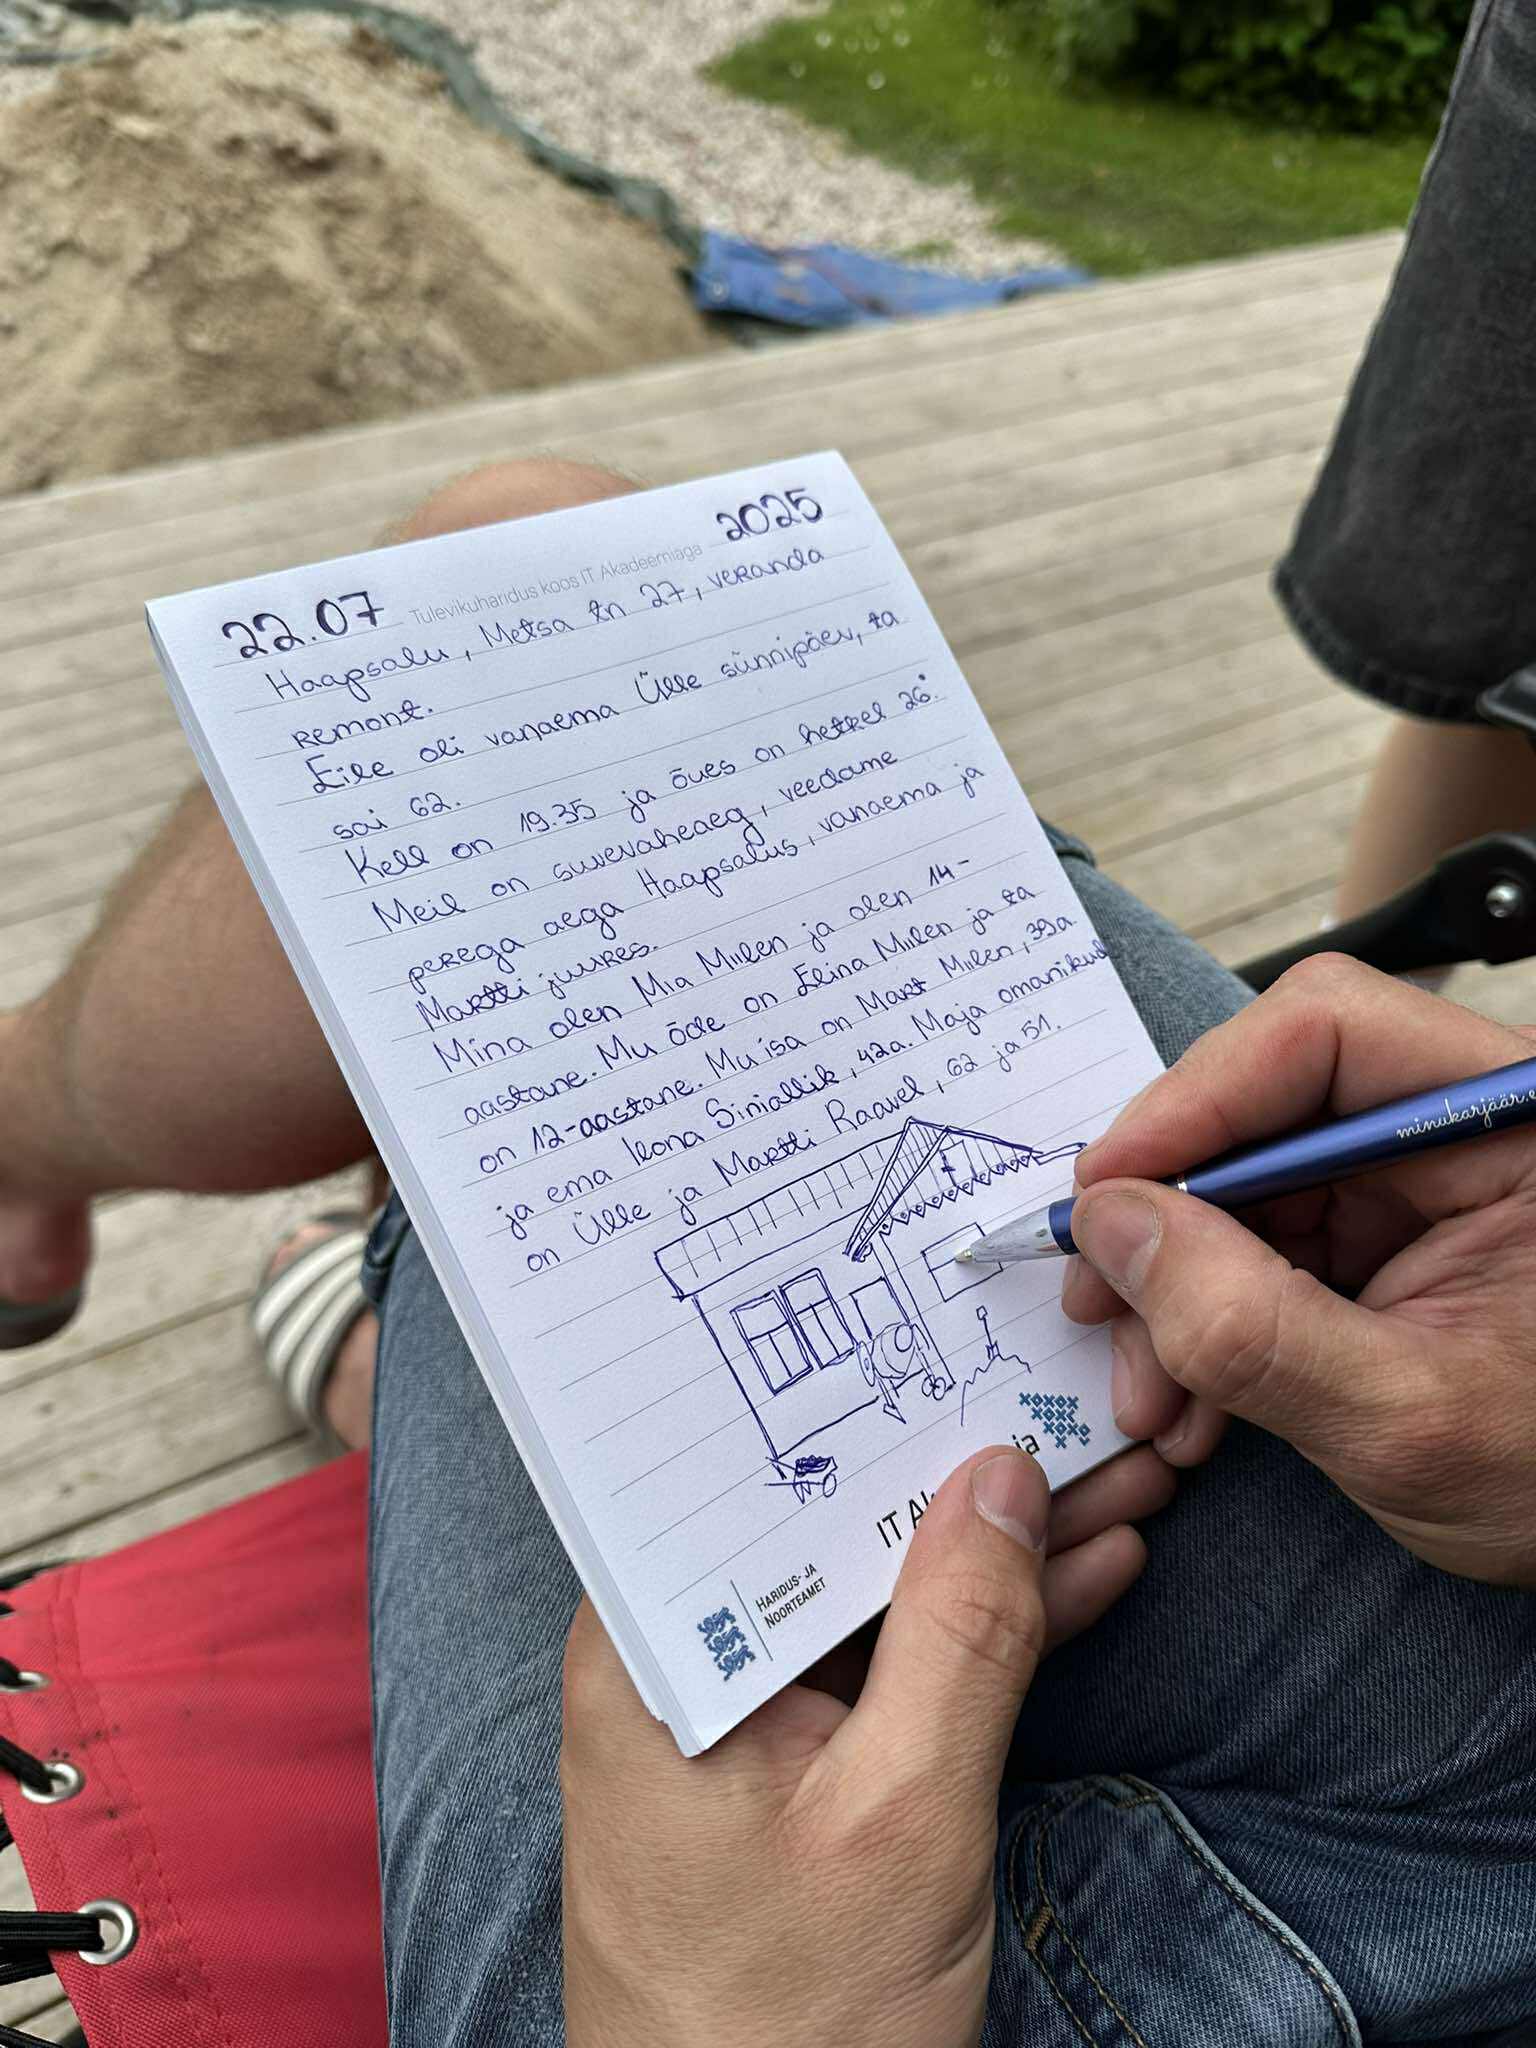 22.07
Tulevikuharidus koos IT Akadeemiaga
2025
Haapsalu, Metsa tn 27, veranda
remont.
Eile oli vanaema Ülle sünnipäev, ta
sai 62.
Kell on 19.35 ja õues on hetkel 26°.
Meil on suvevaheaeg, veedame
perega aega Haapsalus, vanaema ja
Martti juures.
Mina olen Mia Miilen ja olen 14-
aastane. Mu õde on Elina Miilen ja ta
on 12-aastane. Mu isa on Mart Miilen, 39a
ja ema Ilona Siniallik, 42a. Maja omanikud
on Ülle ja Martti Raavel, 62 ja 51.
IT
HARIDUS- JA
NOORTEAMET
minukarjäär.e